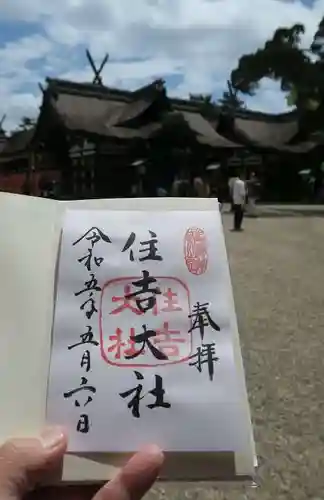 奉拝
住吉大社
住吉大社
令和五年五月六日